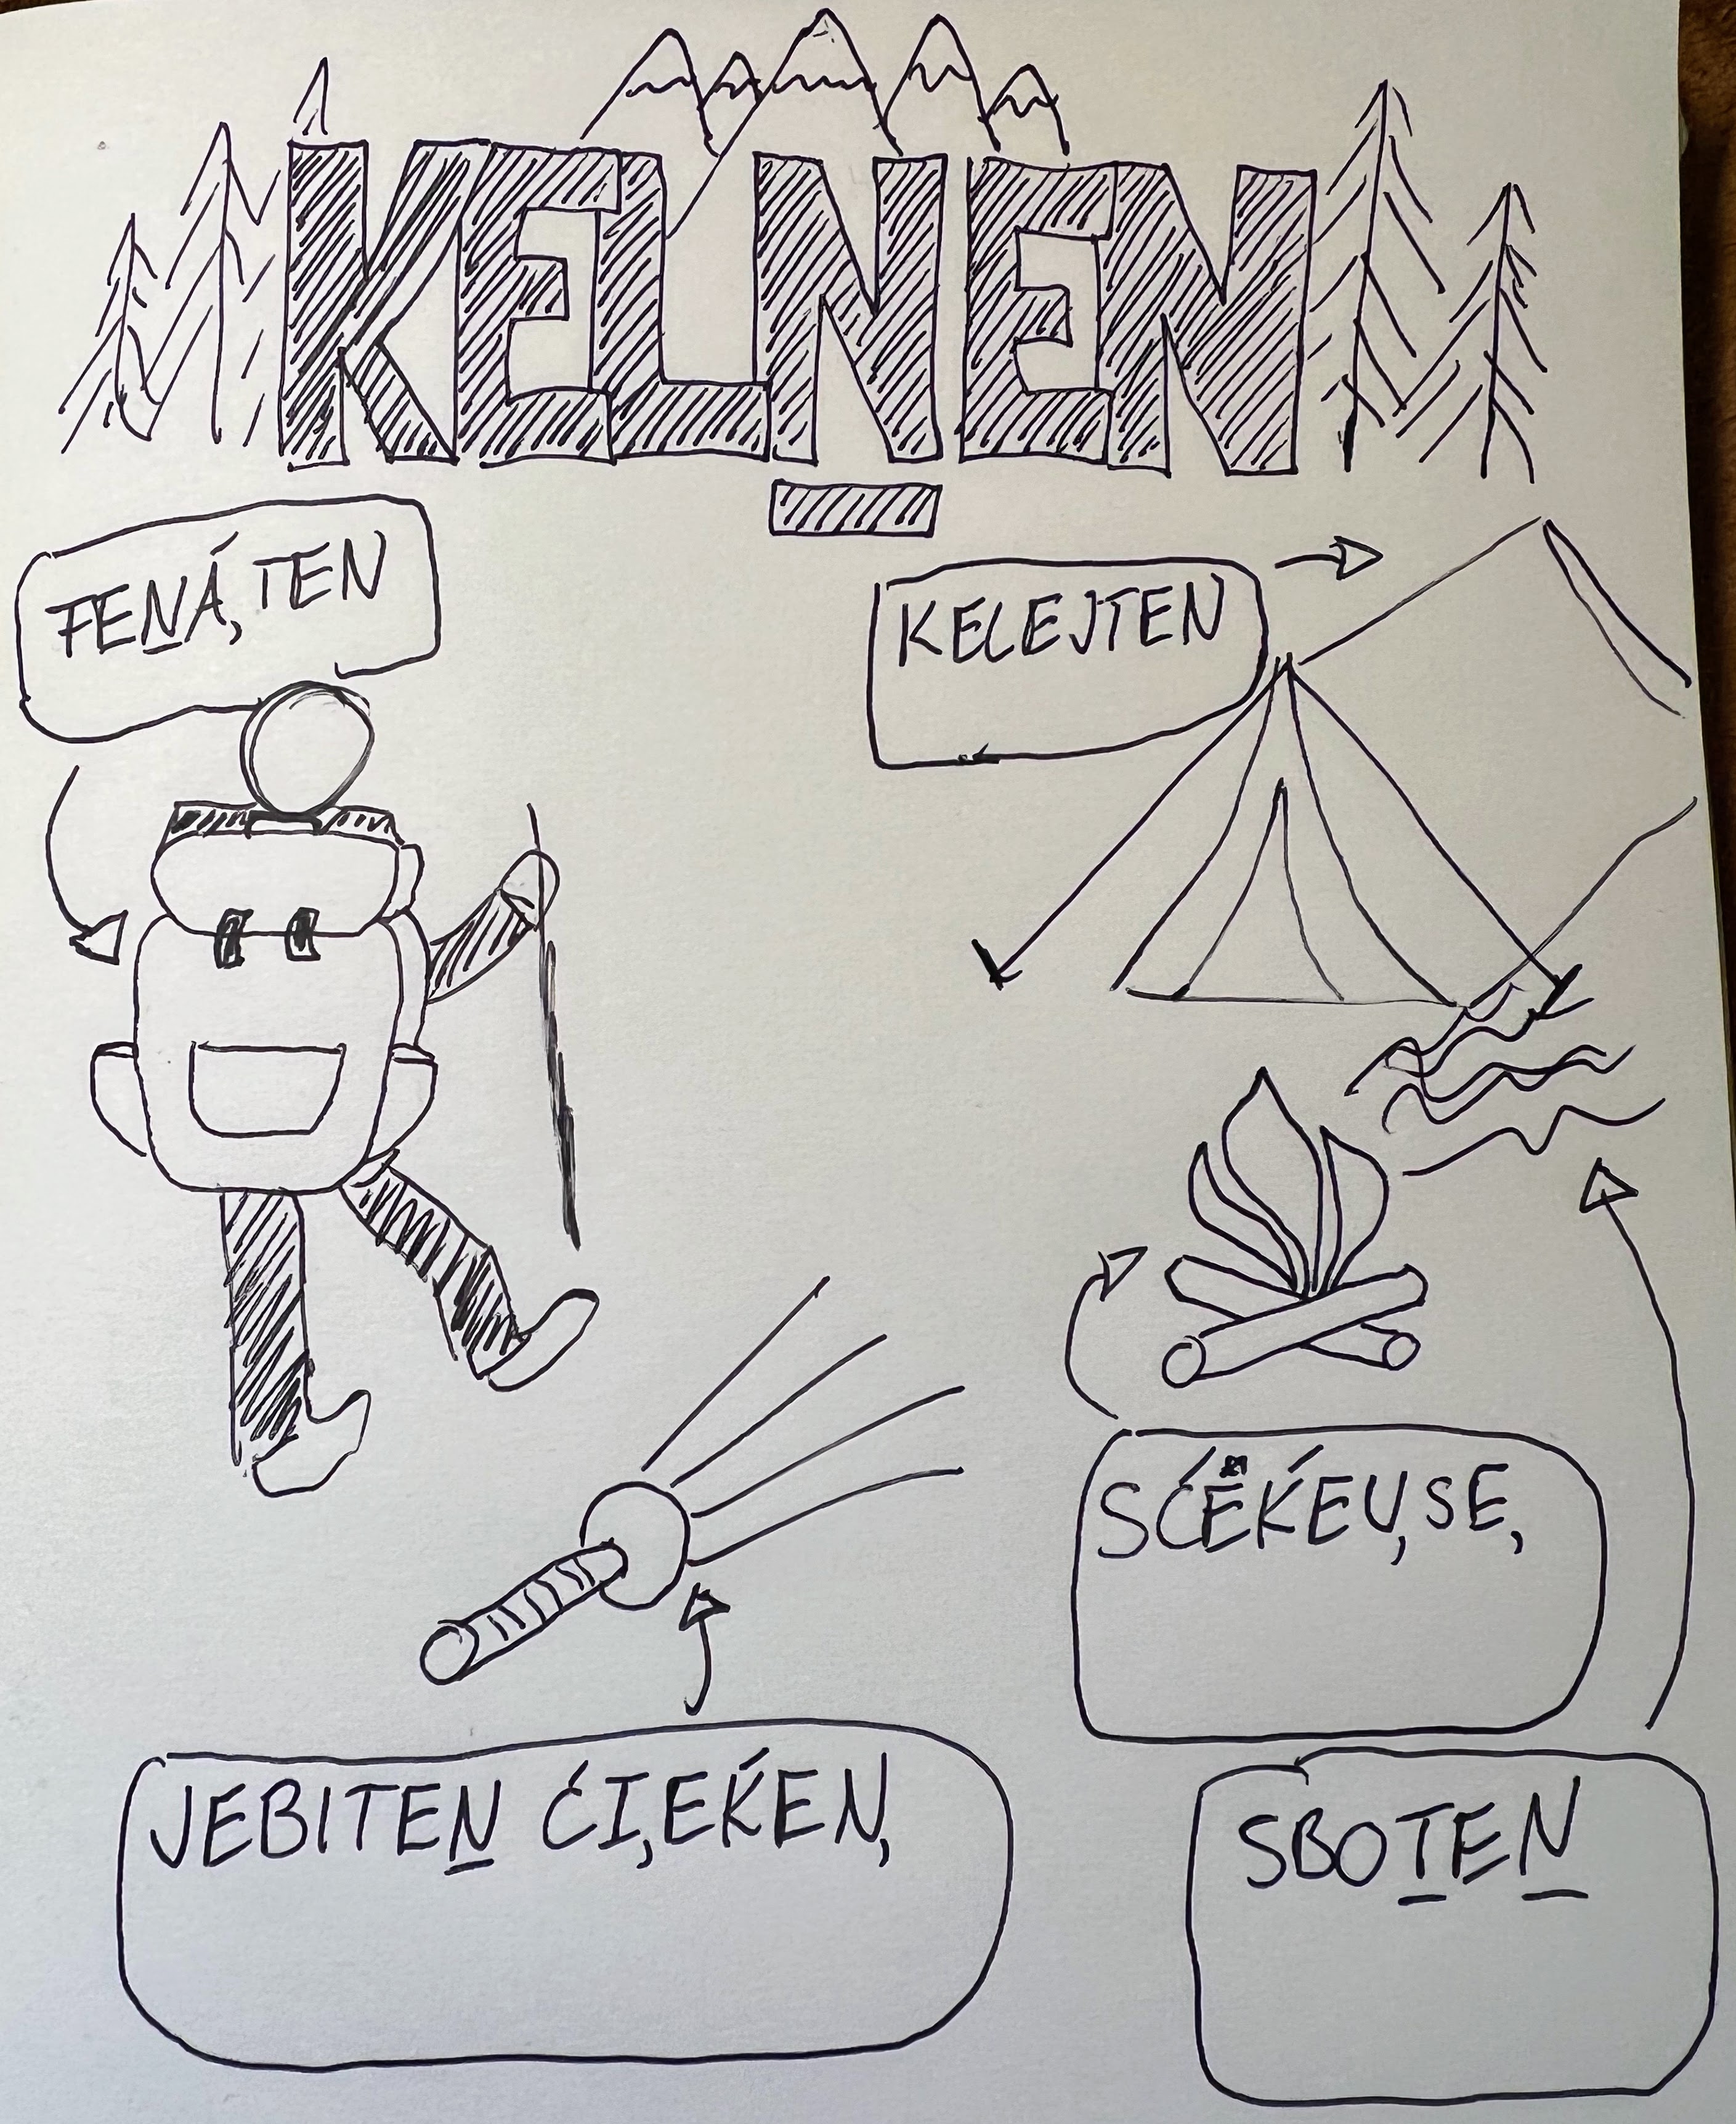 KELṈEN
FEṈÁ,TEN
KELEJTEN
SĆËḰEU,SE,
JEBITEṈ ĆI,EḰEN,
SBOṮEṈ